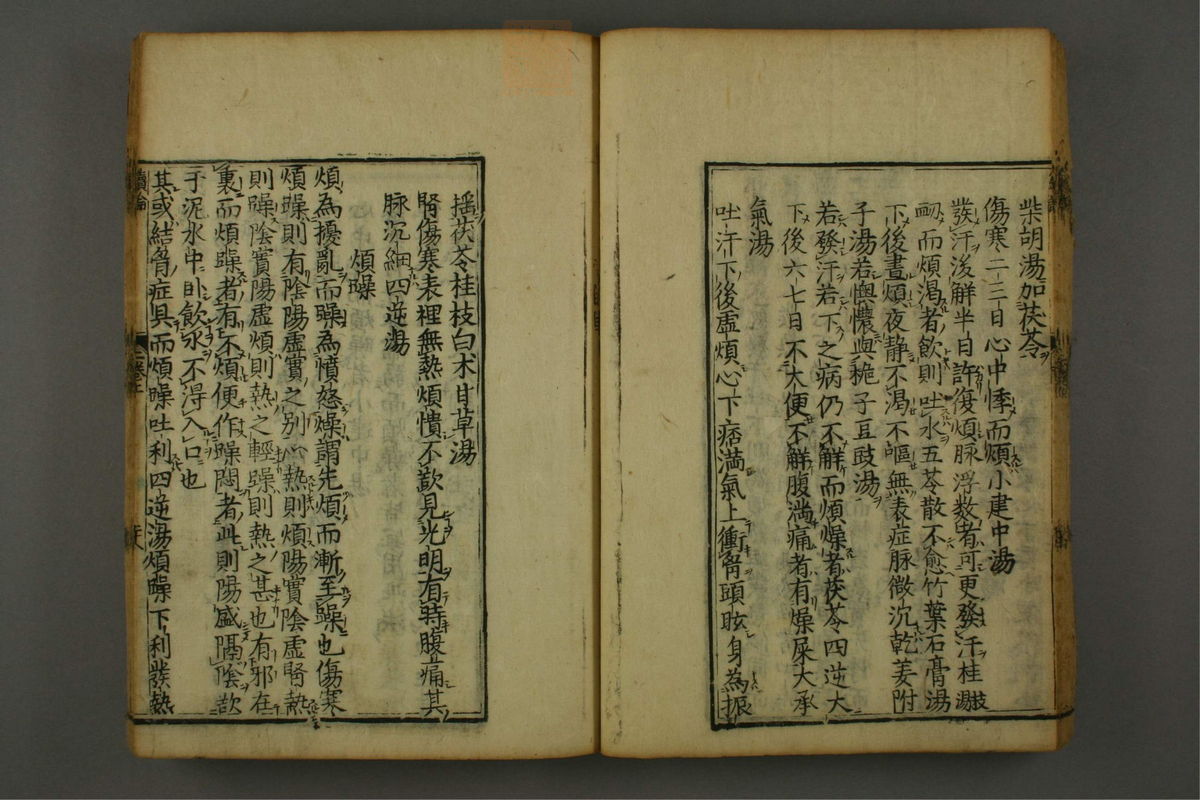 柴胡湯加茯苓
傷寒二三日心中悸而煩小建中湯
發汗後解半日許復煩脉浮数者可更發汗桂枝湯
而煩渇者飲則吐水五苓散不愈竹葉石膏湯
下後晝煩夜静不渇不嘔無表症脉微沉乾姜附
子湯若懊憹與梔子豆豉湯
若發汗若下之病仍不解而煩燥者茯苓四逆大
下後六七日不大便不解腹満痛者有燥屎大承
氣湯
吐汗下後虚煩心下痞満氣上衝胷頭眩身為振
揺茯苓桂枝白朮甘草湯
腎傷寒表裡無熱煩憒不歡見光明有時腹痛其
脉沉細四逆湯
煩躁
煩為擾亂而躁為憤怒燥謂先煩而漸至躁也傷寒
煩躁則有陰陽虚實之别心熱則煩陽實陰虚腎熱
則躁陰實陽虚煩則熱之輕躁則熱之甚也有邪在
裏而煩躁者有不煩便作躁悶者此則陽盛隔陰欲
于泥水中卧飲水不得入口也
其或結胷症具而煩躁吐利四逆湯煩躁下利發熱